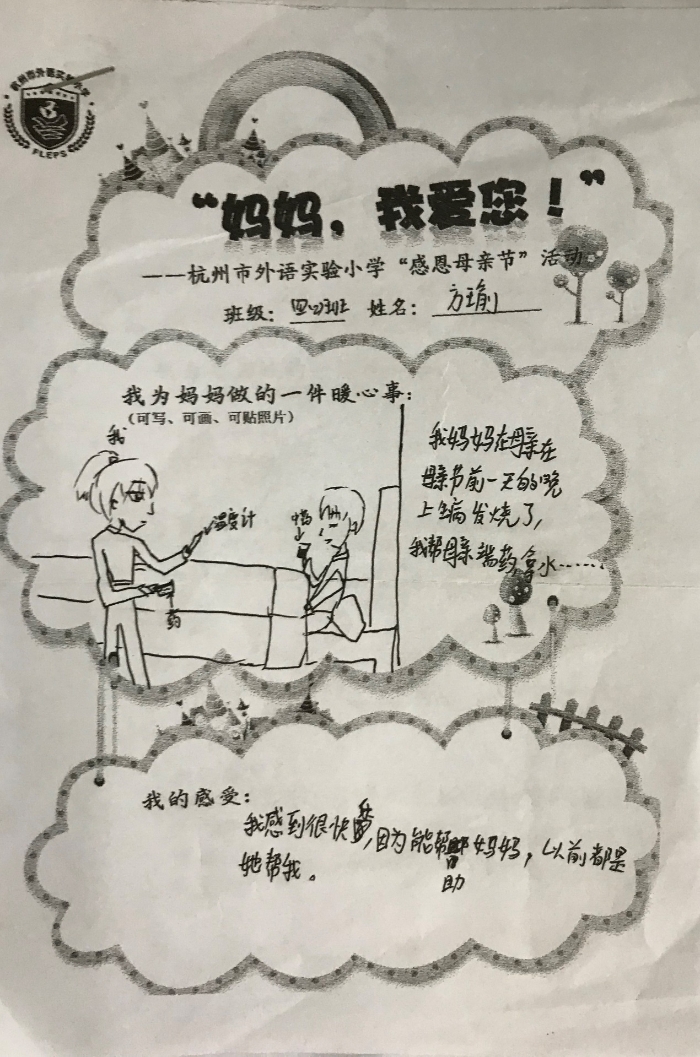 杭州市外语实验小学
FLEPS
“妈妈，我爱您！”
——杭州市外语实验小学“感恩母亲节”活动
班级：四(2)班 姓名：方瑜
我为妈妈做的一件暖心事：
（可写、可画、可贴照片）
我
温度计
药
我妈妈在母亲在
母亲节前一天的晚
上生病发烧了，
我帮母亲端药,拿水……
我的感受：
我感到很快乐,因为能帮助妈妈，以前都是
她帮我。